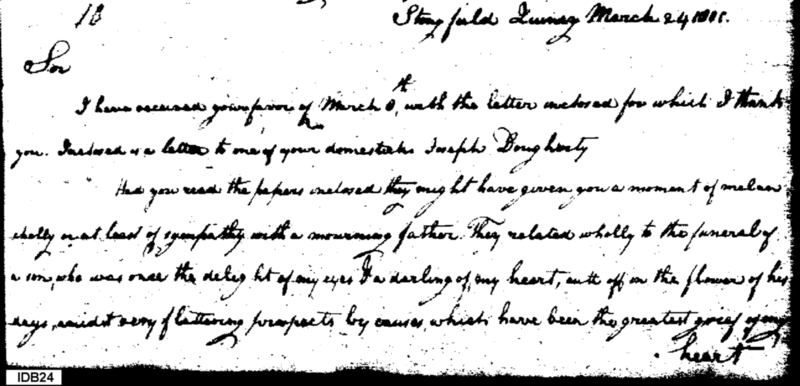 18 Stony field Quincy March 24 1801.
Sir
I have received your favor of March 8th, with the letter inclosed for which I thank
you. Inclosed is a letter to one of your domesticks Joseph Dougherty
Had you read the papers inclosed they might have given you a moment of melan
cholly or at least of sympathy with a mourning father. They related wholly to the funeral of
a son, who was once the delight of my eyes & a darling of my heart, cutt off in the flower of his
days, amidst very flattering prospects by causes which have been the greatest grief of my
heart
IDB24